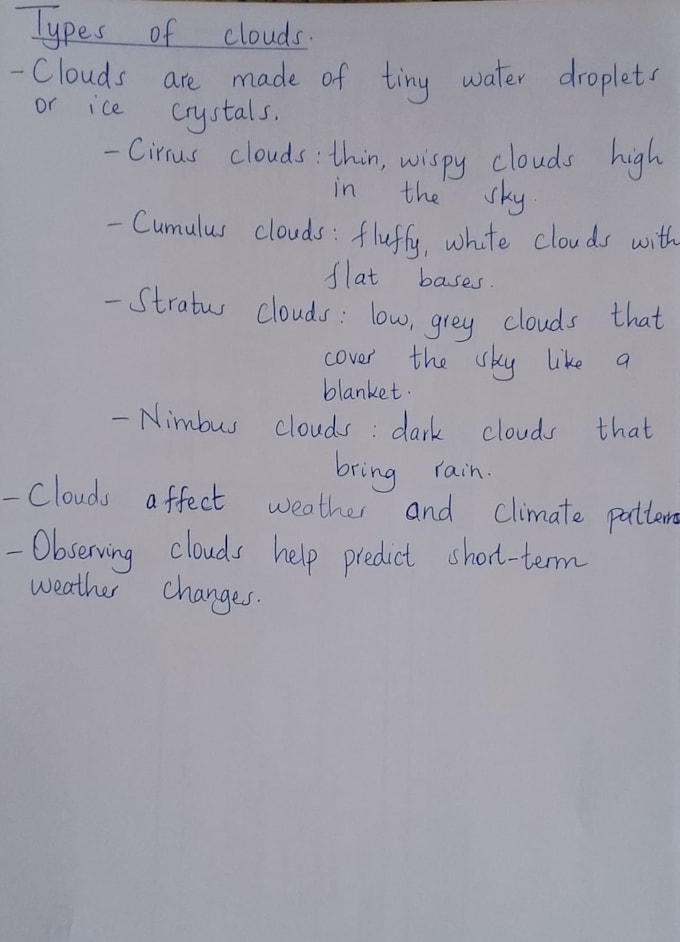 Types of clouds.
- Clouds are made of tiny water droplets
or ice crystals.
- Cirrus clouds : thin, wispy clouds high
in the sky.
- Cumulus clouds : fluffy, white clouds with
flat bases.
- Stratus clouds : low, grey clouds that
cover the sky like a
blanket.
- Nimbus clouds : dark clouds that
bring rain.
- Clouds affect weather and climate patterns
- Observing clouds help predict short-term
weather changes.